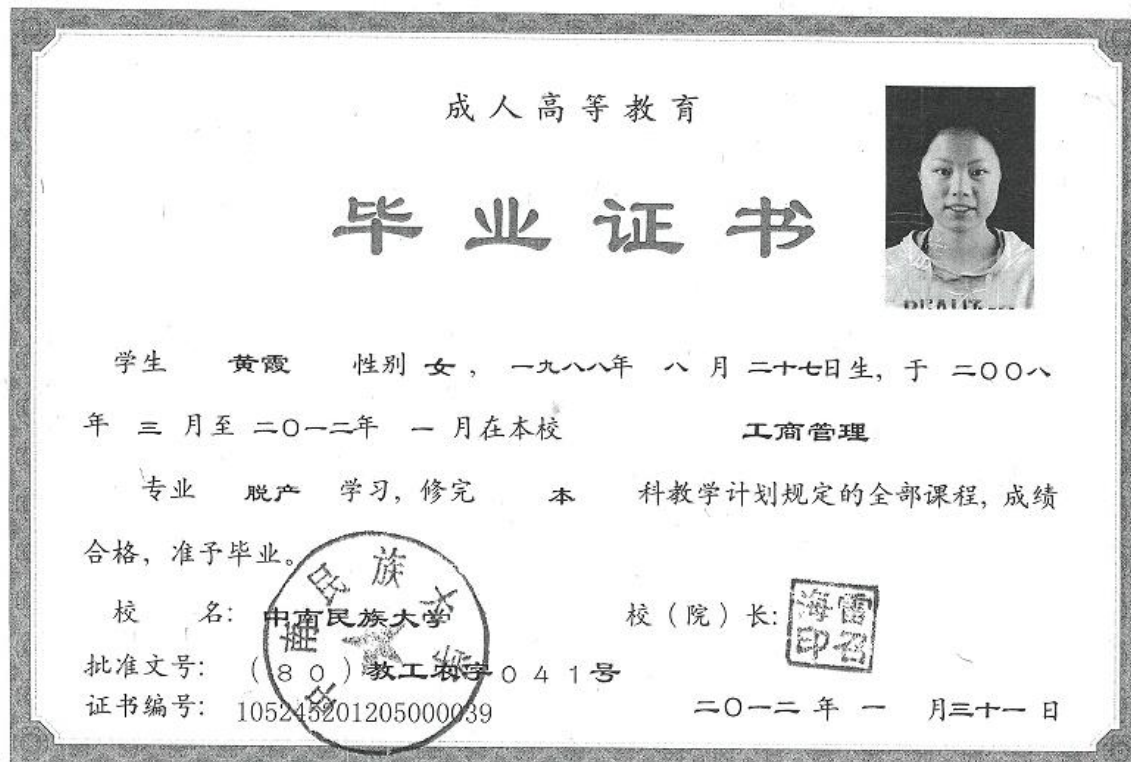 成人高等教育
毕业证书
学生 黄霞 性别 女，一九八八年 八 月 二十七日生，于 二〇〇八
年 三 月至 二〇一二年 一 月在本校 工商管理
专业 脱产 学习，修完 本 科教学计划规定的全部课程，成绩
合格，准予毕业。
校 名：中南民族大学 校（院）长：
批准文号：（80）教工农字041号
证书编号：105245201205000039 二〇一二 年 一 月三十一 日
中南民族大学
雷召海印